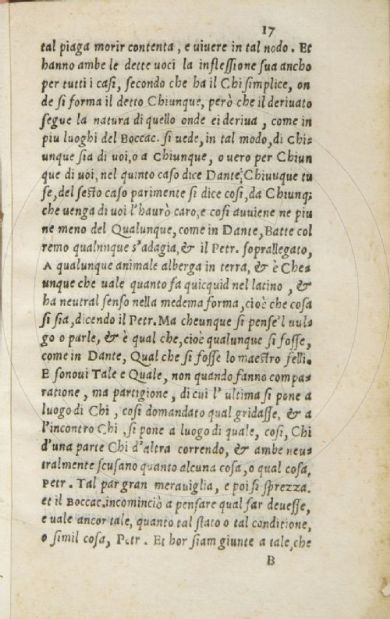 17
tal piaga morir contenta, e uiuere in tal nodo. Et
hanno ambe le dette uoci la inflessione sua ancho
per tutti i casi, secondo che ha il Chi simplice, on
de si forma il detto Chiunque, però che il deriuato
segue la natura di quello onde ei deriua, come in
piu luoghi del Boccac. si uede, in tal modo, di Chi-
unque sia di uoi, o a Chiunque, o uero per Chiun
que di uoi, nel quinto caso dice Dante, Chiunque tu
se, del sesto caso parimente si dice cosi, da Chiunq;
che uenga di uoi l'haurò caro, e cosi auuiene ne piu
ne meno del Qualunque, come in Dante, Batte col
remo qualunque s'adagia, & il Petr. soprallegato,
A qualunque animale alberga in terra, & è Che-
unque che uale quanto fa quicquid nel latino, &
ha neutral senso nella medema forma, cioè che cosa
si sia, dicendo il Petr. Ma cheunque si pense'l uul-
go o parle, & è qual che, cioè qualunque si fosse,
come in Dante, Qual che si fosse lo maestro felli.
E sonoui Tale e Quale, non quando fanno compa-
ratione, ma partigione, di cui l'ultima si pone a
luogo di Chi, cosi domandato qual gridasse, & a
l'incontro Chi, si pone a luogo di quale, cosi, Chi
d'una parte Chi d'altra correndo, & ambe neu-
tralmente scusano quanto alcuna cosa, o qual cosa,
Petr. Tal par gran merauiglia, e poi si sprezza.
et il Boccac. incominciò a pensare qual far deuesse,
e uale ancor tale, quanto tal stato o tal conditione,
o simil cosa, Petr. Et hor siam giunte a tale che
B